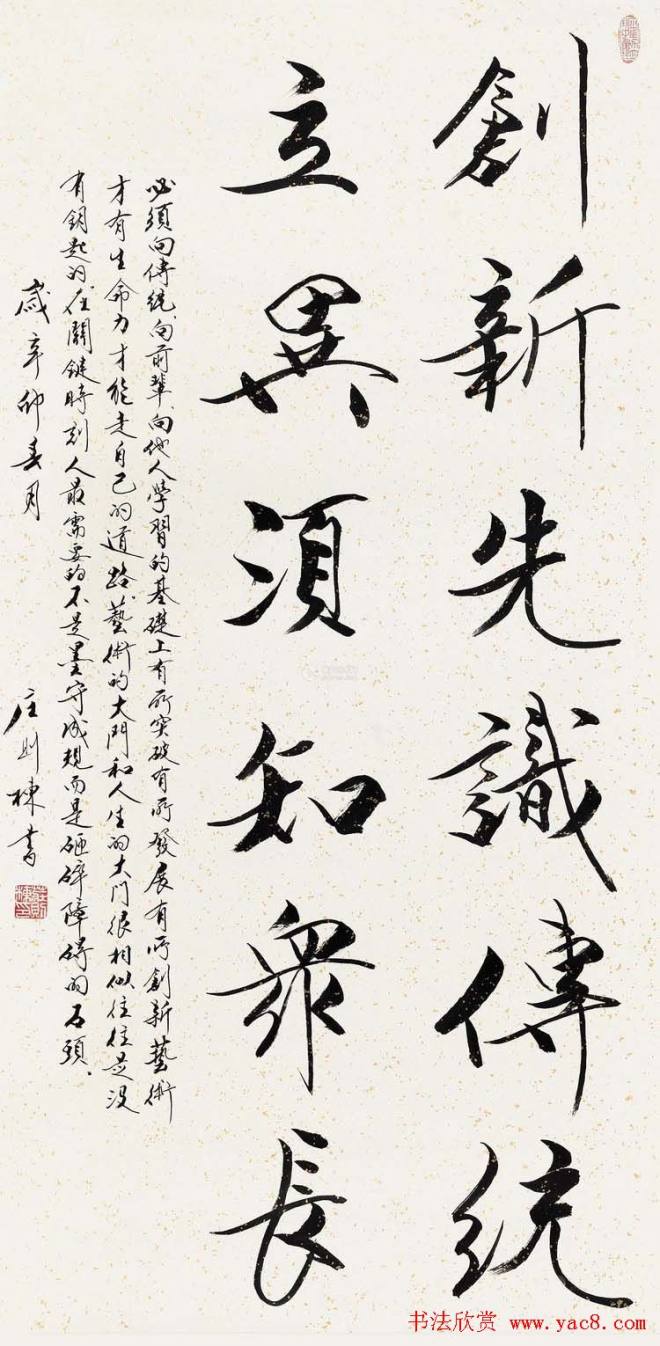 創新先識傳統
立異須知衆長
必須向傳統、向前輩、向他人學習的基礎上有所突破有所發展有所創新藝術
才有生命力才能走自己的道路藝術的大門和人生的大門很相似往往是沒
有鑰匙的在關鍵時刻人最需要的不是墨守成規而是砸碎障碍的石頭.
歲辛卯春月
庄则棟書
莊則棟印
书法欣赏 www.yac8.com